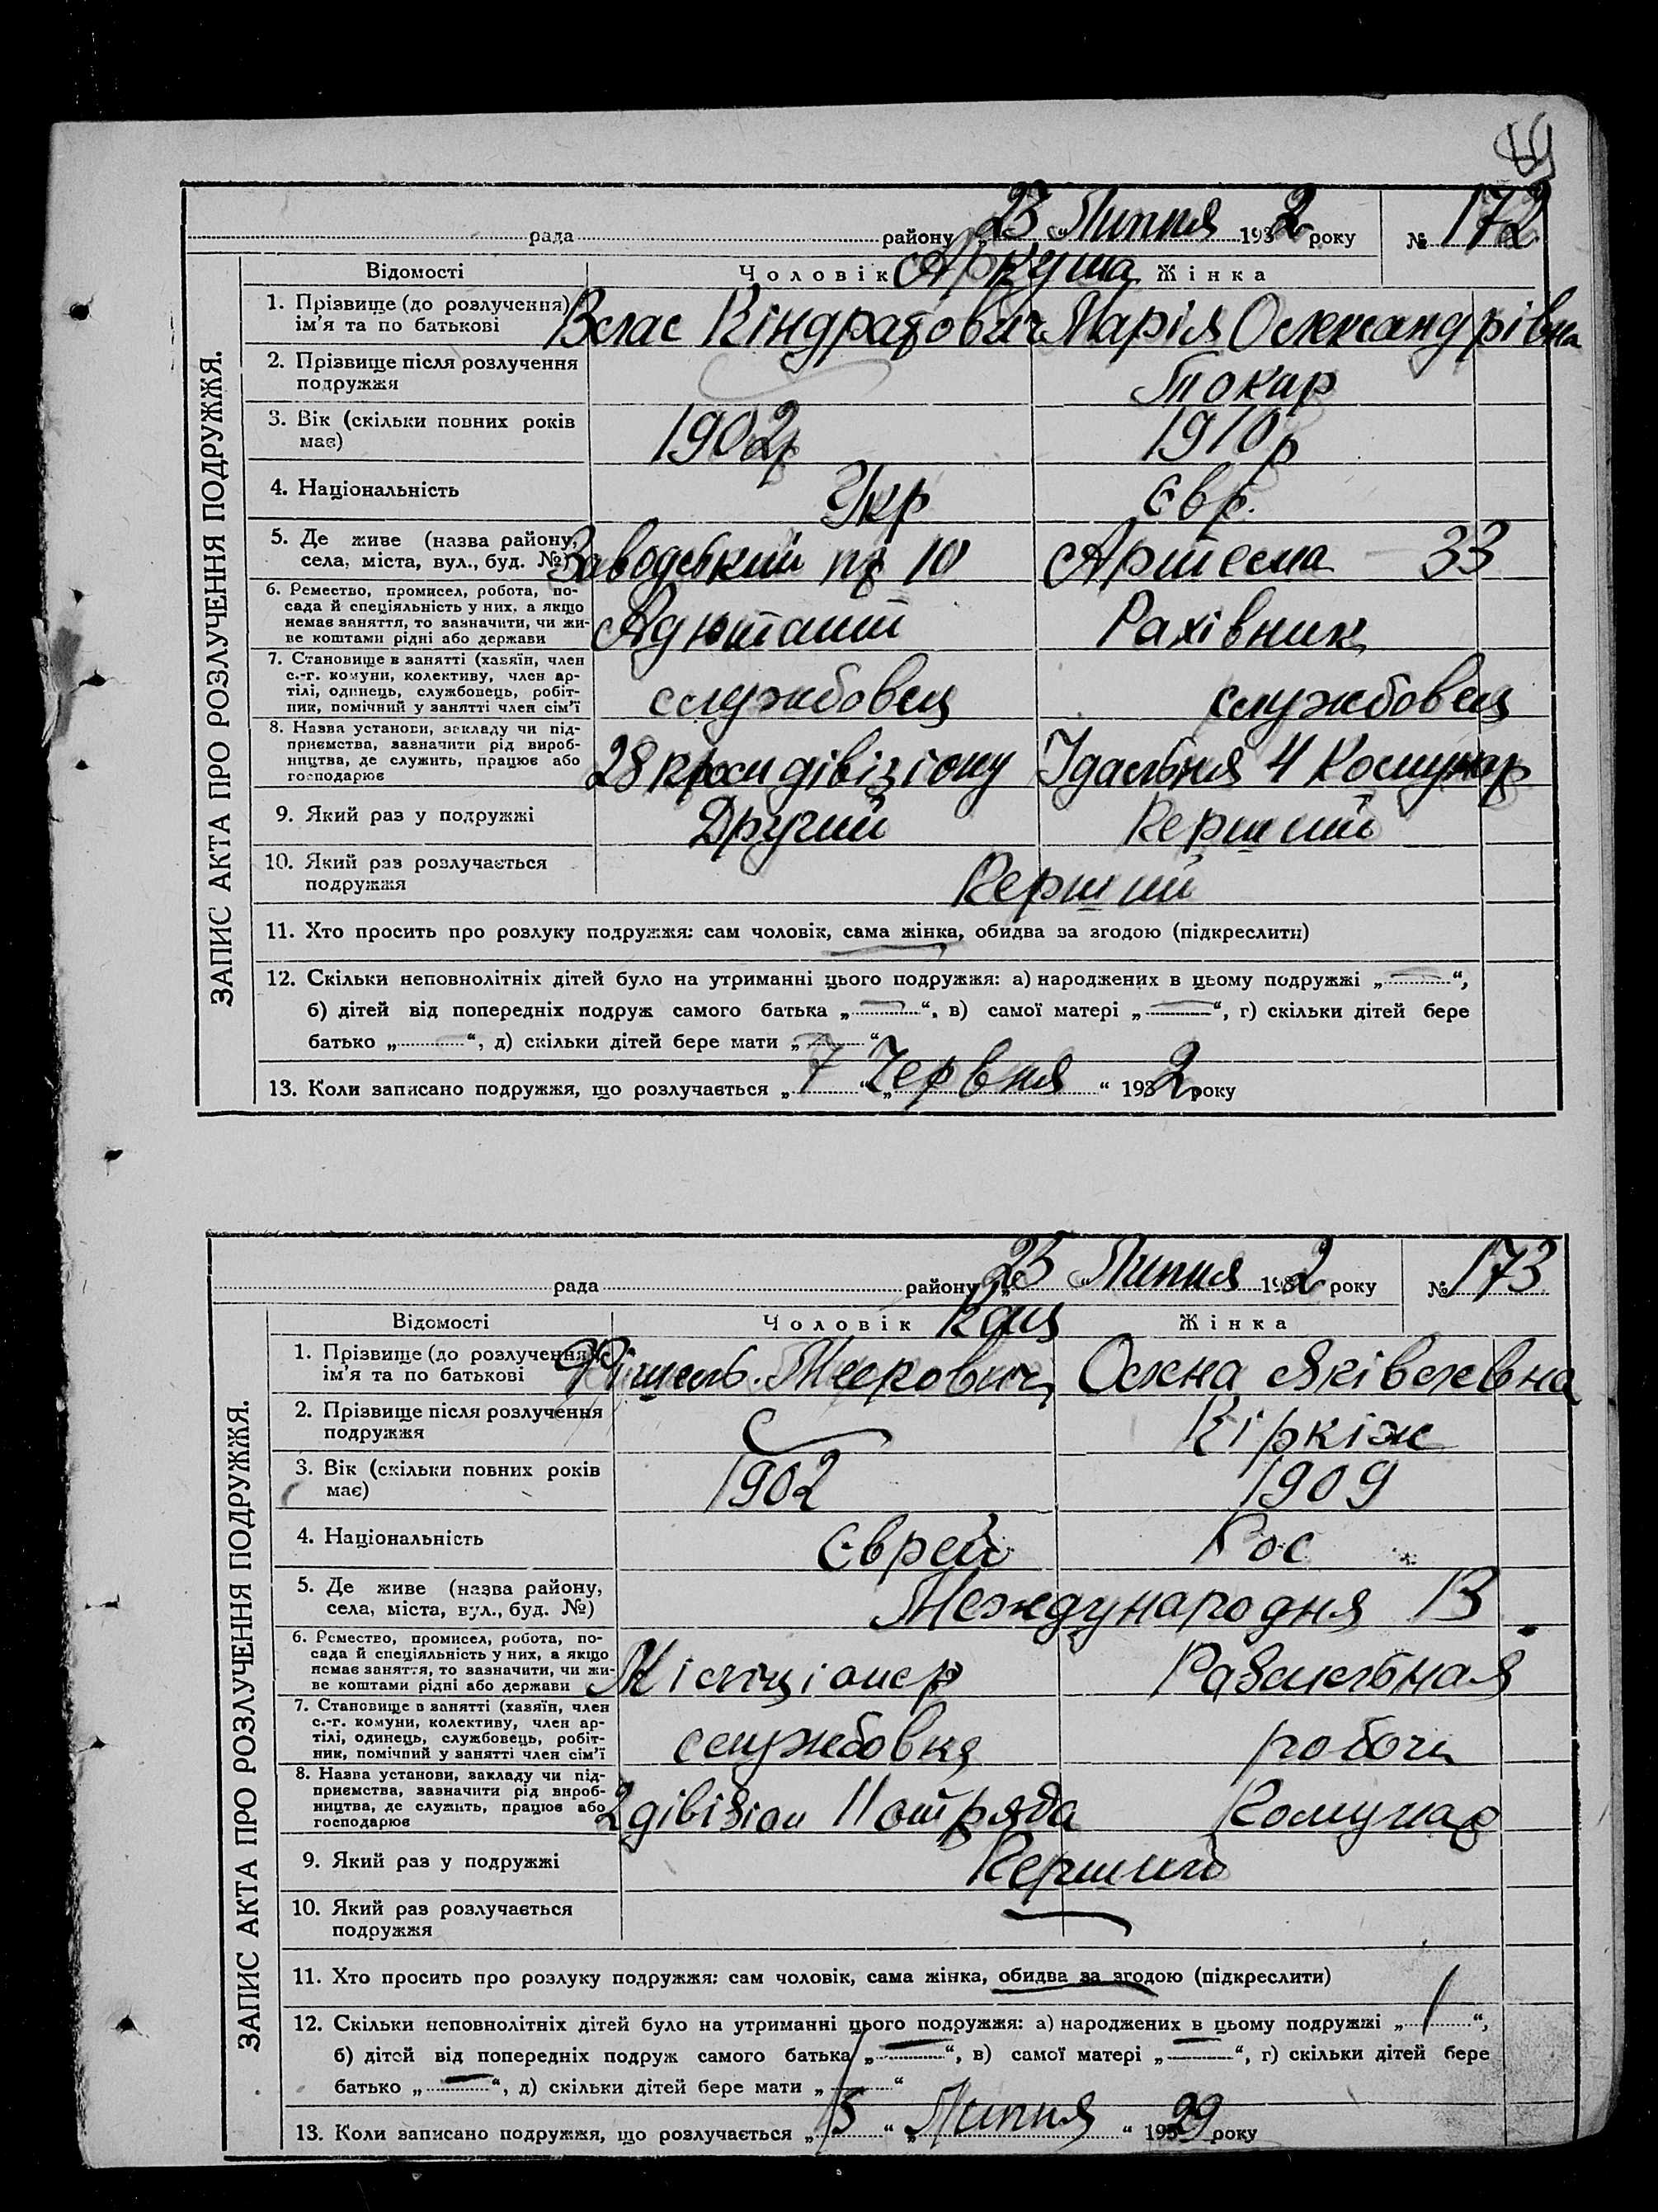 рада району „23 „Липня 1932 року № 172
Відомості Чоловік Аркуша Жінка
1. Прізвище (до розлучення) ім'я та по батькові Влас Кіндратович Марія Олександрівна
2. Прізвище після розлучення подружжя Токар
3. Вік (скільки повних років має) 1902р 1910р
4. Національність Укр Євр.
5. Де живе (назва району, села, міста, вул., буд. №) Заводський пр 10 Артема 33
6. Ремество, промисел, робота, по-
сада й спеціяльність у них, а якщо
немає заняття, то зазначити, чи жи-
ве коштами рідні або держави Адютант Рахівник
7. Становище в занятті (хазяїн, член
с.-г. комуни, колективу, член ар-
тілі, одинець, службовець, робіт-
ник, помічний у занятті член сім'ї службовец службовец
8. Назва установи, закладу чи під-
приємства, зазначити рід вироб-
ництва, де служить, працює або
господарює 28 дівізіону Їдальня 4 Комунар
9. Який раз у подружжі Другий Перший
10. Який раз розлучається
подружжя Перший
11. Хто просить про розлуку подружжя: сам чоловік, сама жінка, обидва за згодою (підкреслити)
12. Скільки неповнолітніх дітей було на утриманні цього подружжя: а) народжених в цьому подружжі „—“,
б) дітей від попередніх подруж самого батька „—“, в) самої матері „—“, г) скільки дітей бере
батько „—“, д) скільки дітей бере мати „—“
13. Коли записано подружжя, що розлучається „7“ „Червня“ 1932 року
ЗАПИС АКТА ПРО РОЗЛУЧЕННЯ ПОДРУЖЖЯ.
рада району „23 „Липня 1932 року № 173
Відомості Чоловік Кац Жінка
1. Прізвище (до розлучення) ім'я та по батькові Фішель Меерович Олена Яківлевна
2. Прізвище після розлучення
подружжя Кіркіж
3. Вік (скільки повних років
має) 1902 1909
4. Національність Єврей Рос
5. Де живе (назва району,
села, міста, вул., буд. №) Международня 13
6. Ремество, промисел, робота, по-
сада й спеціяльність у них, а якщо
немає заняття, то зазначити, чи жи-
ве коштами рідні або держави Міліціонер
7. Становище в занятті (хазяїн, член
с.-г. комуни, колективу, член ар-
тілі, одинець, службовець, робіт-
ник, помічний у занятті член сім'ї робочи
8. Назва установи, закладу чи під-
приємства, зазначити рід вироб-
ництва, де служить, працює або
господарює 2 дівізіон 11 отряда Комунар
9. Який раз у подружжі Перший
10. Який раз розлучається
подружжя
11. Хто просить про розлуку подружжя: сам чоловік, сама жінка, обидва за згодою (підкреслити)
12. Скільки неповнолітніх дітей було на утриманні цього подружжя: а) народжених в цьому подружжі „1“,
б) дітей від попередніх подруж самого батька „—“, в) самої матері „—“, г) скільки дітей бере
батько „—“, д) скільки дітей бере мати „1“
13. Коли записано подружжя, що розлучається „5“ „Липня“ 1929 року
ЗАПИС АКТА ПРО РОЗЛУЧЕННЯ ПОДРУЖЖЯ.